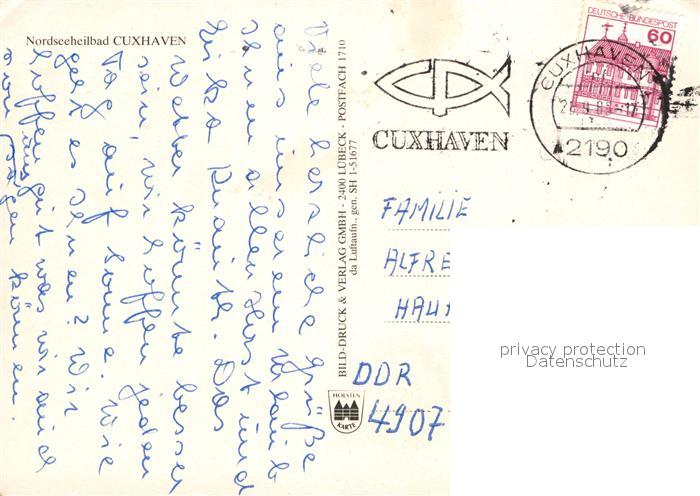 Nordseeheilbad CUXHAVEN
Viele herzliche Grüße
aus unserem Urlaub
Ihnen allen Horst und
Erika
Das
Wetter könnte besser
sein, wir hoffen jeden
Tag auf Sonne. Wie
geht es Ihnen? Wir
hoffen gut was wir auch
von uns sagen können.
BILD-DRUCK & VERLAG GMBH - 2400 LÜBECK - POSTFACH 1710
da Luftaufn., gen. SH 1-51677
HOLSTEN
KARTE
CUXHAVEN
DEUTSCHE BUNDESPOST
60
CUXHAVEN
2190
FAMILIE
ALFRE
HAU
DDR
4907
privacy protection
Datenschutz